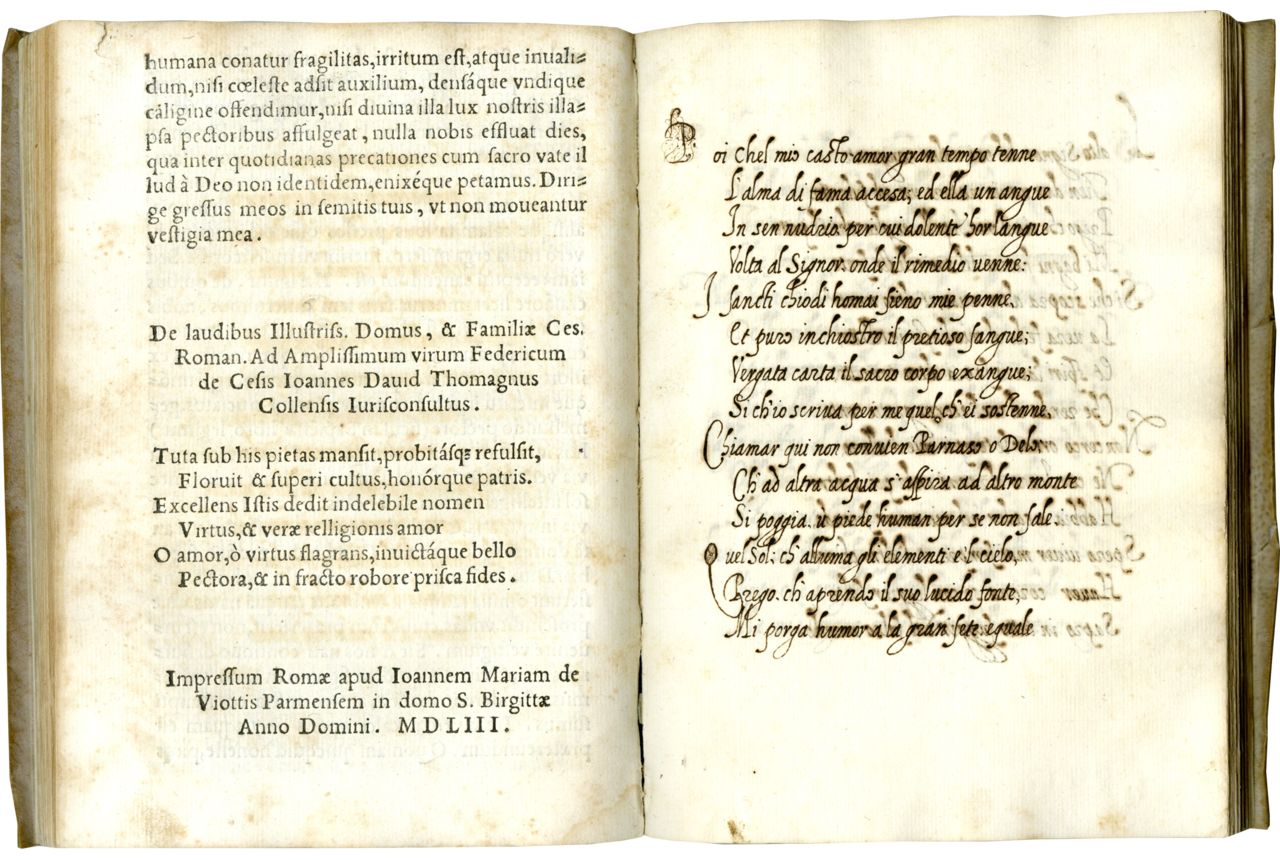 humana conatur fragilitas, irritum est, atque inuali⸗
dum, nisi cœleste adsit auxilium, densáque vndique
caligine offendimur, nisi diuina illa lux nostris illa⸗
psa pectoribus affulgeat, nulla nobis effluat dies,
qua inter quotidianas precationes cum sacro vate il
lud à Deo non identidem, enixéque petamus. Diri⸗
ge gressus meos in semitis tuis, vt non moueantur
vestigia mea.
De laudibus Illustriss. Domus, & Familiæ Ces.
Roman. Ad Amplissimum virum Federicum
de Cesis Ioannes Dauid Thomagnus
Collensis Iurisconsultus.
Tuta sub his pietas mansit, probitásq; refulsit,
Floruit & superi cultus, honórque patris.
Excellens Istis dedit indelebile nomen
Virtus, & veræ relligionis amor
O amor, ò virtus flagrans, inuictáque bello
Pectora, & in fracto robore prisca fides.
Impressum Romæ apud Ioannem Mariam de
Viottis Parmensem in domo S. Birgittæ
Anno Domini. MDLIII.
Poi Chel mio casto amor gran tempo tenne
L'alma di fama accesa; ed ella un angue
In sen nudrio per cui dolente hor langue
Volta al Signor, onde il rimedio uenne:
I sancti chiodi homai sieno mie penne,
Et puro inchiostro il pretioso sangue;
Vergata carta il sacro corpo exangue;
Si ch'io scriua per me quel, ch'ei sostenne,
Chiamar qui non conuien Parnaso o Delo:
Ch' ad altra acqua s'aspira, ad altro monte
Si poggia, ù piede human per se non sale:
Quel Sol; ch'alluma gli elementi e 'l cielo,
Prego, ch' aprendo il suo lucido fonte,
Mi porga humor a la gran sete equale